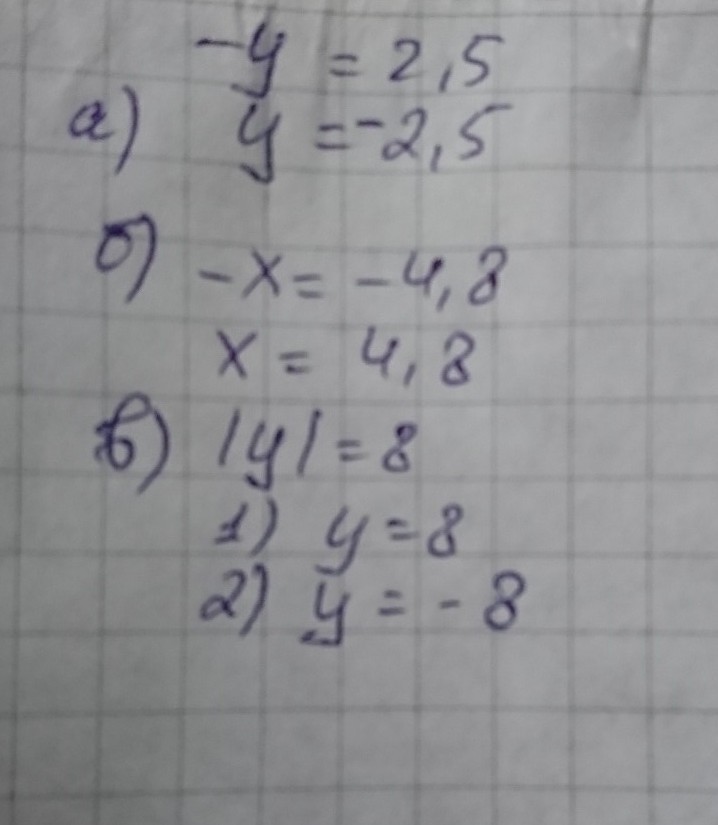 -y = 2,5
а) y = -2,5
б) -x = -4,8
x = 4,8
в) |y| = 8
1) y = 8
2) y = -8